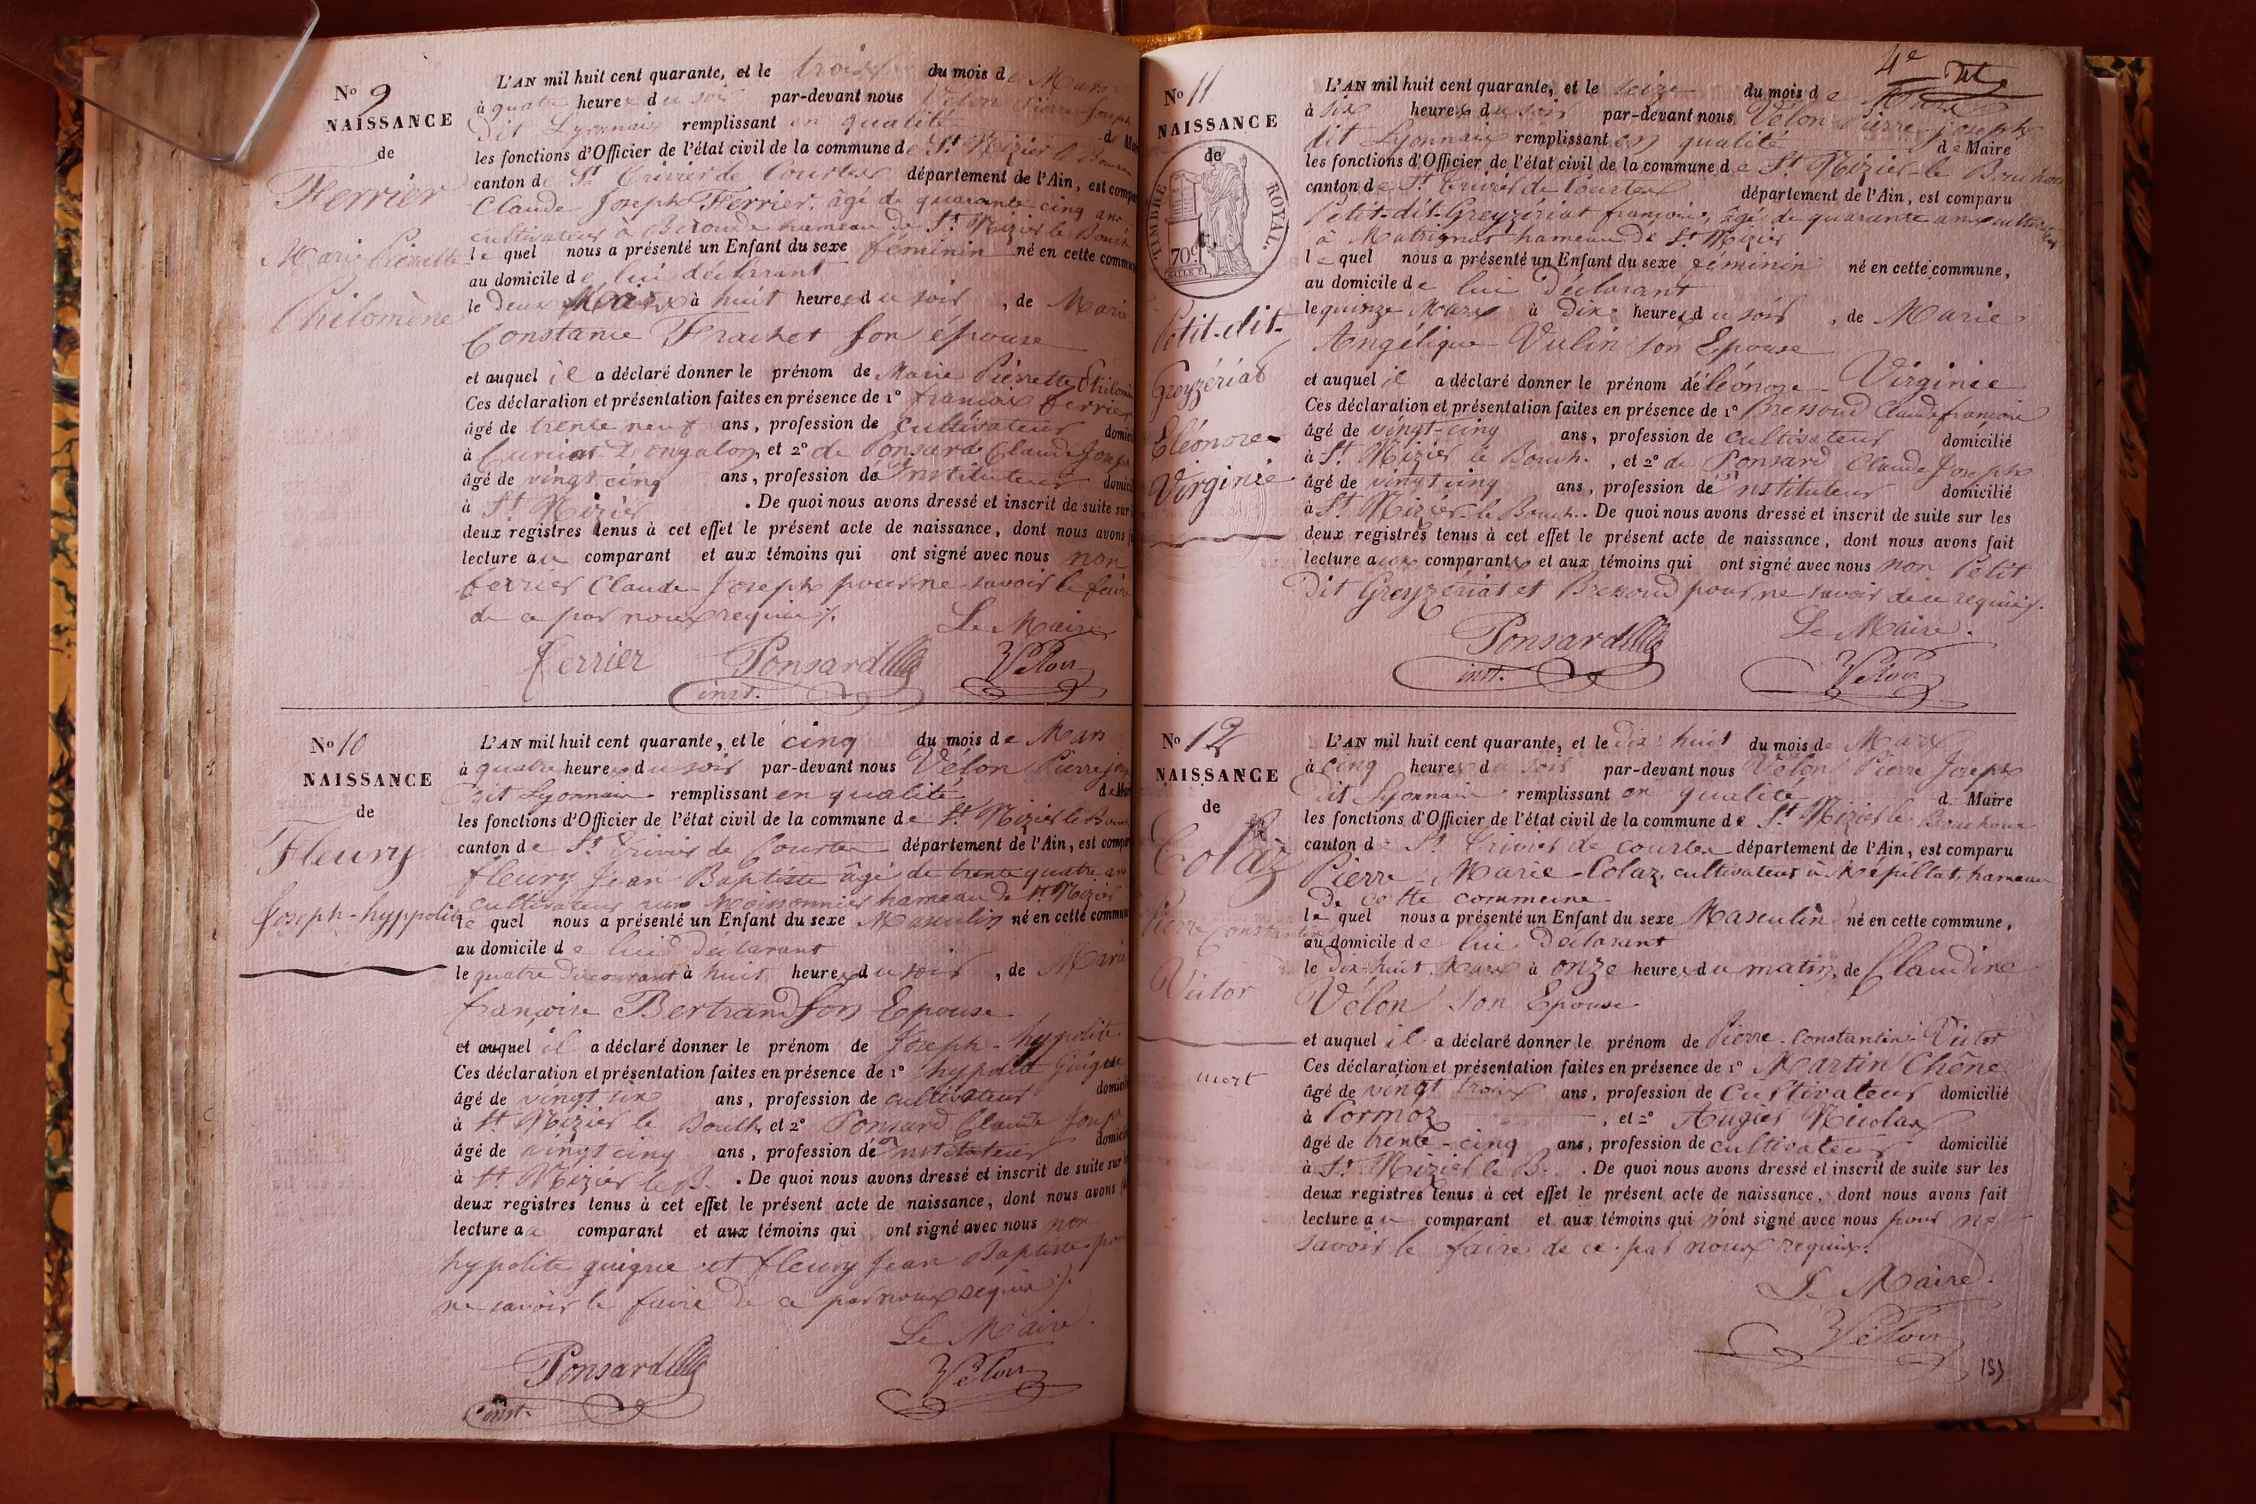 No 9
NAISSANCE
de
Ferrier
Marie Pierrette
Philomène
L'AN mil huit cent quarante, et le trois du mois de Mars
à quatre heures du soir par-devant nous Vélon Pierre Joseph
dit Lyonnais remplissant en qualité de Mai
les fonctions d'Officier de l'état civil de la commune de St Nizier le Bouch
canton de St Trivier de Courtes département de l'Ain, est compa
Claude Joseph Ferrier, âgé de quarante cinq ans
cultivateur à hameau de St Nizier le Bouch
le quel nous a présenté un Enfant du sexe féminin né en cette commun
au domicile de lui déclarant
le deux Mars à huit heures du soir, de Marie
Constance Frachet son épouse
et auquel il a déclaré donner le prénom de Marie Pierrette Philomène
Ces déclaration et présentation faites en présence de 1º françois ferrier
âgé de trente neuf ans, profession de cultivateur domici
à Curciat Dongalon, et 2º de Ponsard Claude Joseph
âgé de vingt cinq ans, profession de Instituteur domici
à St Nizier . De quoi nous avons dressé et inscrit de suite sur
deux registres tenus à cet effet le présent acte de naissance, dont nous avons f
lecture au comparant et aux témoins qui ont signé avec nous non
ferrier Claude-Joseph pour ne savoir le faire
de ce par nous requis.
Le Maire
Ferrier Ponsard Vélon
inst.
No 10
NAISSANCE
de
Fleury
Joseph-hyppolite
L'AN mil huit cent quarante, et le cinq du mois de Mars
à quatre heures du soir par-devant nous Vélon Pierre jos
dit Lyonnais remplissant en qualité de Mai
les fonctions d'Officier de l'état civil de la commune de St Nizier le Bouc
canton de St Trivier de Courtes département de l'Ain, est compa
fleury Jean Baptiste âgé de trente quatre ans
cultivateur aux Moissonnier hameau de St Nizier
le quel nous a présenté un Enfant du sexe Masculin né en cette commun
au domicile de lui déclarant
le quatre du courant à huit heures du soir, de Marie
françoise Bertrand son Epouse
et auquel il a déclaré donner le prénom de Joseph-hyppolite
Ces déclaration et présentation faites en présence de 1º hypolite Guigue
âgé de vingt six ans, profession de cultivateur domicil
à St Nizier le Bouch, et 2º Ponsard Claude Josep
âgé de vingt cinq ans, profession de Instituteur domici
à St Nizier le B. . De quoi nous avons dressé et inscrit de suite sur
deux registres tenus à cet effet le présent acte de naissance, dont nous avons
lecture au comparant et aux témoins qui ont signé avec nous non
hypolite guigue et fleury Jean Baptiste pour
ne savoir le faire de ce par nous requis.
Le Maire.
Ponsard Vélon
inst.
4e
No 11
NAISSANCE
de
TIMBRE ROYAL.
70c
Petit-dit-
Greyzériat
Eléonore-
Virginie
L'AN mil huit cent quarante, et le seize du mois de Mars
à six heures du soir par-devant nous Vélon Pierre Joseph
dit Lyonnais remplissant en qualité de Maire
les fonctions d'Officier de l'état civil de la commune de St Nizier-le Bouchoux
canton de St Trivier de Courtes département de l'Ain, est comparu
Petit-dit-Greyzériat françois, âgé de quarante ans cultivateur
à Matrignat hameau de St Nizier
le quel nous a présenté un Enfant du sexe féminin né en cette commune,
au domicile de lui déclarant
le quinze Mars à dix heures du soir, de Marie
Angélique Vulin son Epouse
et auquel il a déclaré donner le prénom de éléonore Virginie
Ces déclaration et présentation faites en présence de 1º Bressoud Claude françois
âgé de vingt-cinq ans, profession de cultivateur domicilié
à St Nizier le Bouch. , et 2º de Ponsard Claude Joseph
âgé de vingt cinq ans, profession de Instituteur domicilié
à St Nizier-le Bouch. . De quoi nous avons dressé et inscrit de suite sur les
deux registres tenus à cet effet le présent acte de naissance, dont nous avons fait
lecture aux comparants et aux témoins qui ont signé avec nous non Petit
Dit Greyzériat et Bressoud pour ne savoir de ce requis.
Le Maire.
Ponsard Vélon
inst.
No 12
NAISSANCE
de
Colaz
Pierre Constantin
Victor
mort
L'AN mil huit cent quarante, et le dix huit du mois de Mars
à cinq heures du soir par-devant nous Vélon Pierre Joseph
dit Lyonnais remplissant en qualité de Maire
les fonctions d'Officier de l'état civil de la commune de St Nizier le Bouchoux
canton de St Trivier de courtes département de l'Ain, est comparu
Pierre-Marie-Colaz, cultivateur à Mépillat, hameau
de cette commune
le quel nous a présenté un Enfant du sexe Masculin né en cette commune,
au domicile de lui Déclarant
le dix-huit Mars à onze heures du matin, de Claudine
Vélon Son Epouse
et auquel il a déclaré donner le prénom de Pierre-Constantin-Victor
Ces déclaration et présentation faites en présence de 1º Martin Chêne
âgé de vingt trois ans, profession de Cultivateur domicilié
à Cormoz , et 2º Augier Nicolas
âgé de trente-cinq ans, profession de cultivateur domicilié
à St Nizier le B. . De quoi nous avons dressé et inscrit de suite sur les
deux registres tenus à cet effet le présent acte de naissance, dont nous avons fait
lecture au comparant et aux témoins qui n'ont signé avec nous pour ne
savoir le faire de ce par nous requis.
Le Maire.
Vélon